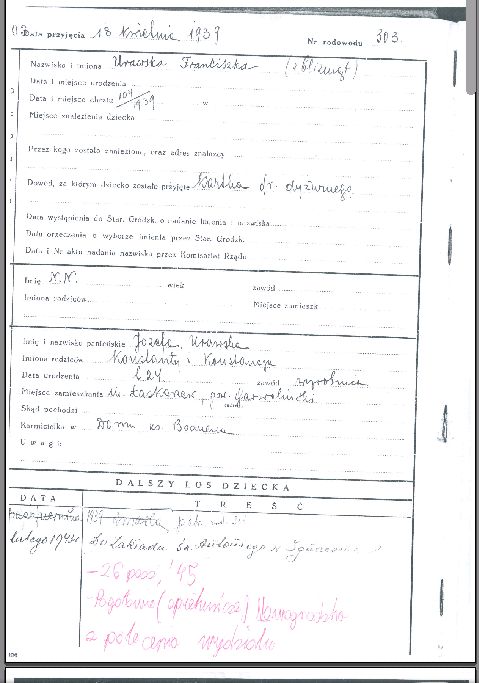 Data przyjęcia 18 kwietnia 1939
Nr rodowodu 303.
Nazwisko i imiona Urawska Franciszka (z bliźniąt)
Data i miejsce urodzenia
Data i miejsce chrztu 104/939 w
Miejsce znalezienia dziecka
Przez kogo zostało znalezione, oraz adres znalazcy
Dowód, za którym dziecko zostało przyjęte Kartka dr. dyżurnego
Data wystąpienia do Star. Grodzk. o nadanie imienia i nazwiska
Data orzeczenia o wyborze imienia przez Star. Grodzk.
Data i Nr aktu nadania nazwiska przez Komisariat Rządu
Imię N.N. wiek zawód
Imiona rodziców Miejsce zamieszk.
Imię i nazwisko panieńskie Józefa Urawska
Imiona rodziców Konstanty i Konstancja
Data urodzenia l. 24 zawód wyrobnica
Miejsce zamieszkania m. Łaskarzew, pow. Garwoliński
Skąd pochodzi
Karmicielka w Domu ks. Boduena
Uwagi:
DALSZY LOS DZIECKA
DATA
TREŚĆ
1939
lutego Do Zakładu św. Antoniego w
- 26 paźd. '45
- Pogotowie (opiekuńcze)
z polecenia wydziału
106